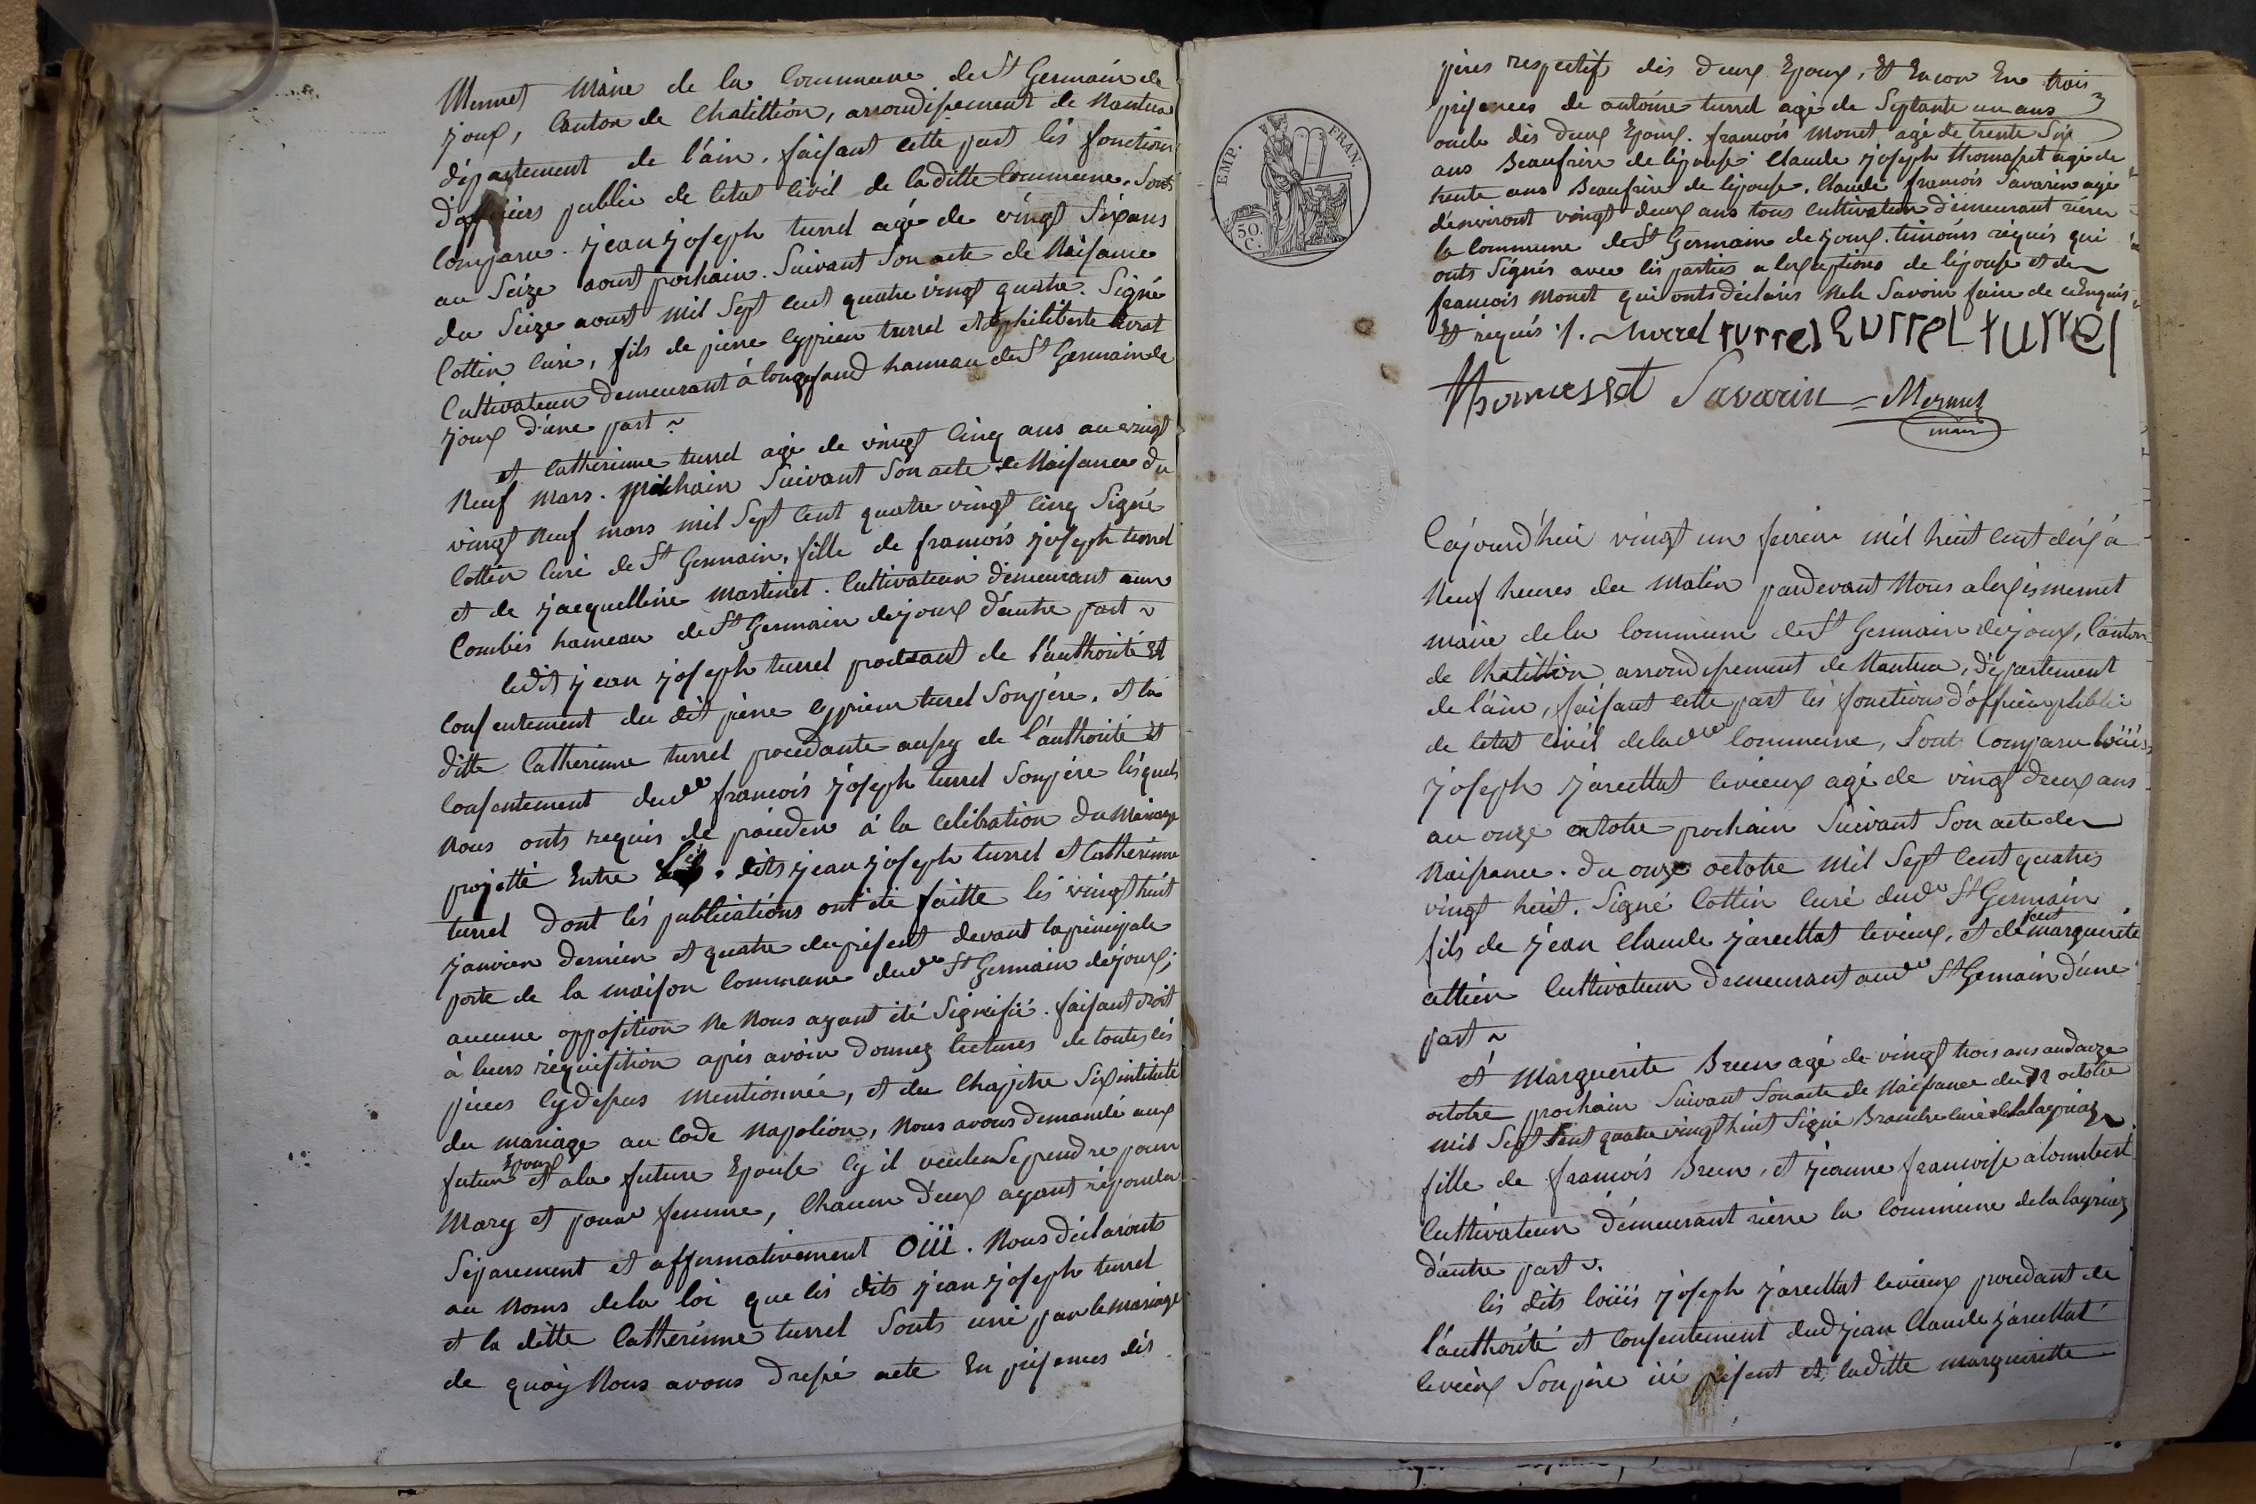 Mermet Maire de la Commune de St Germain de
joux, Canton de Chatillion, arrondissement de Nantua
département de l'ain, faisant cette part lés fonction
d'officiers public de letat Civil de laditte Commune. Sonts
Comparu. jean joseph turrel agé de vingt Six ans
au Seize aoust prochain. Suivant Son acte de Naissance
du Seize aoust mil Sept Cent quatre vingt quatre. Signé
Cottin Curé, fils de piere Cyprien turrel et de philiberte
Cultivateur demeurant à longefand hamau de St Germain de
joux d'une part ~
et Catherinne turrel agé de vingt Cinq ans au vingt
Neuf Mars. prochain Suivant Son acte de Naissance du
vingt Neuf mars mil Sept Cent quatre vingt Cinq Signé
Cottin Curé de St Germain, fille de francois joseph turrel
et de jacquelline Martinet. Cultivateur démeurant aux
Combes hameau de St Germain dejoux d'autre part ~
ledit jean joseph turrel procédant de l'authorité Et
Consentement du dit piere Cyprien turrel Son père, et la
ditte Catherinne turrel procédante aussy de l'authorité et
Consentement dud francois joseph turrel Son père lésquels
Nous onts requis de procéder à la célébration du Mariage
projetté Entre Lés dits jean joseph turrel et Catherinne
turrel dont lés publications ont été faitte lés vingt huit
janvier dernier et quatre du présent devant la principale
porte de la maison Commune dud St Germain déjoux,
aucune opposition Ne Nous ayant été Signifié. faisant droit
à leurs réquisition aprés avoir donnez lectures de toutes lés
pieces Cydessus mentionnée, et du Chapitre Six intitulé
du mariage au Code Napoléon, Nous avons demandé aux
futur Epoux et ala future Epouse Cy il veulen Se prendre pour
Mary et pour femme, Chacun d'eux ayant répondu
Séparement et affirmativement oüi. Nous déclaronts
au Noms de la loi que lés dits jean joseph turrel
et la ditte Catherinne turrel Sonts uni par le mariage
de quoÿ Nous avons dressé acte En présences dés
EMP. FRAN.
50. C.
pères respectif dés deux Epoux, Et Encor En trois
présences de antoine turrel agé de Septante un ans
oncle dés deux Epoux. francois Monet agé de trente Six
ans Beaufrère de l'épouse Claude joseph thomasset agé de
trente ans Beaufrère de l'épouse, Claude francois Savarin agé
d'environt vingt deux ans tous Cultivateur démeurant rière
la Commune de St Germain de joux. témoins requis qui
onts Signés avec lés parties a lexceptions de l'épouse et de
francois Monet qui onts déclarés Nele Savoir faire de ce Enquis
Et requés ./. turrel turrel turrel turrel
Thomasset Savarin Mermet
maire
Cajourd'hui vingt un fevrier mil huit Cent dix à
Neuf heures du Matin pardevant Nous alexis mermet
maire dela Commune de St Germain dejoux, Canton
de Chatillion arrondissement de Nantua, département
de l'ain, faisant cette part lés fonctions d'officier public
de letat Civil delad Commune, Sont Comparu loüis
joseph jarettat levieux agé de vingt deux ans
au onze octobre prochain Suivant Son acte de
Naissance. du onze octobre mil Sept Cent quatre
vingt huit. Signé Cottin Curé dud St Germain
fils de jean Claude jarettat levieux, et de marguerite
Cultivateur demeurant aud St Germain d'une
part ~
et Marguerite Brun agé de vingt trois ans au douze
octobre prochain Suivant Son acte de Naissance du 12 octobre
mil Sept Cent quatre vingt huit Signé Curé
fille de francois Brun, et jeanne francoise alombert
Cultivateur démeurant rière la Commune
d'autre part ~.
lés dits loüis joseph jarettat levieux procédant de
l'authorité et Consentement dud jean Claude jarettat
levieux Son père içi présent et laditte margueritte